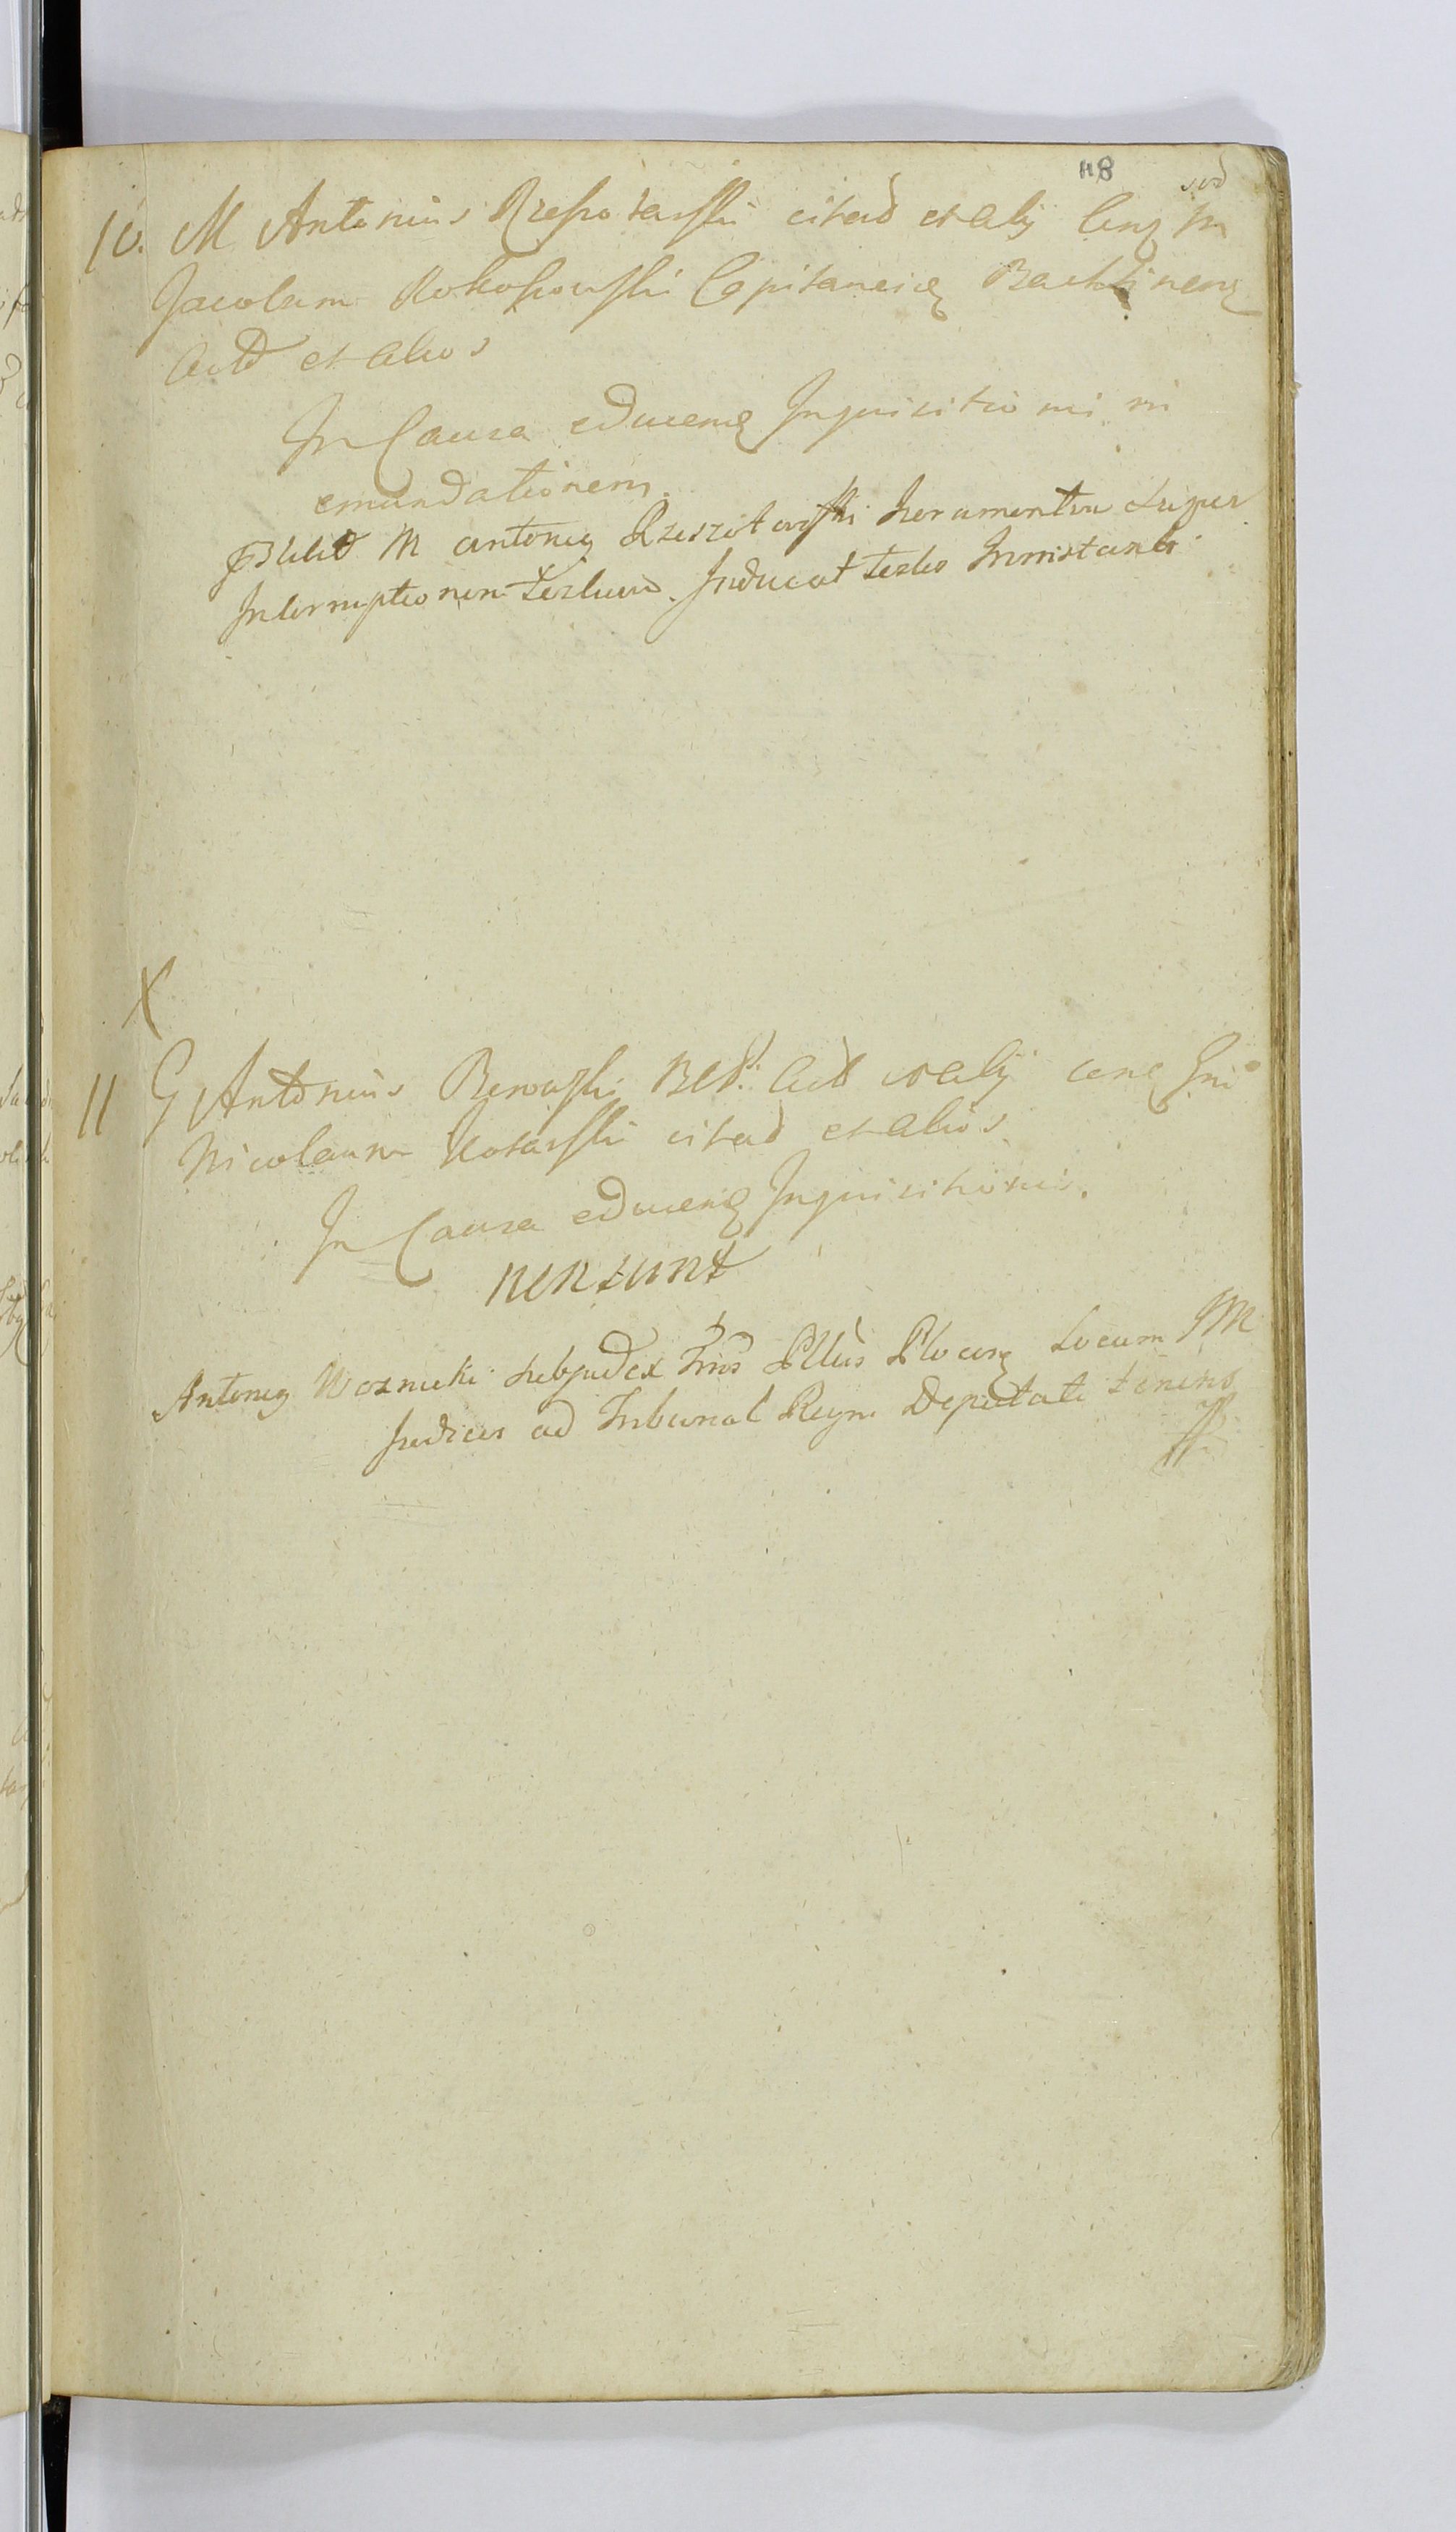 118
10. M Antonius Rzeszotarski citad et alij Cenq M
Jacobum Kokoszowski Capitaneiq
Actd et alios
In Causa educenq Inquisitionis in
emundationem.
M Antoniq Rzeszotarski Juramentum Super
Interruptionem Testium. Inducat Testes
X
11 G Antonius act et alij cenq Gm
Nicolaum Kotarski citad et alios
In Causa educenq Inquisitionis.
non sunt
Antoniq Woznicki subjudex Trris Pllus Plocenq Locum IM
Judicis ad Tribunal Regni Deputati tenens